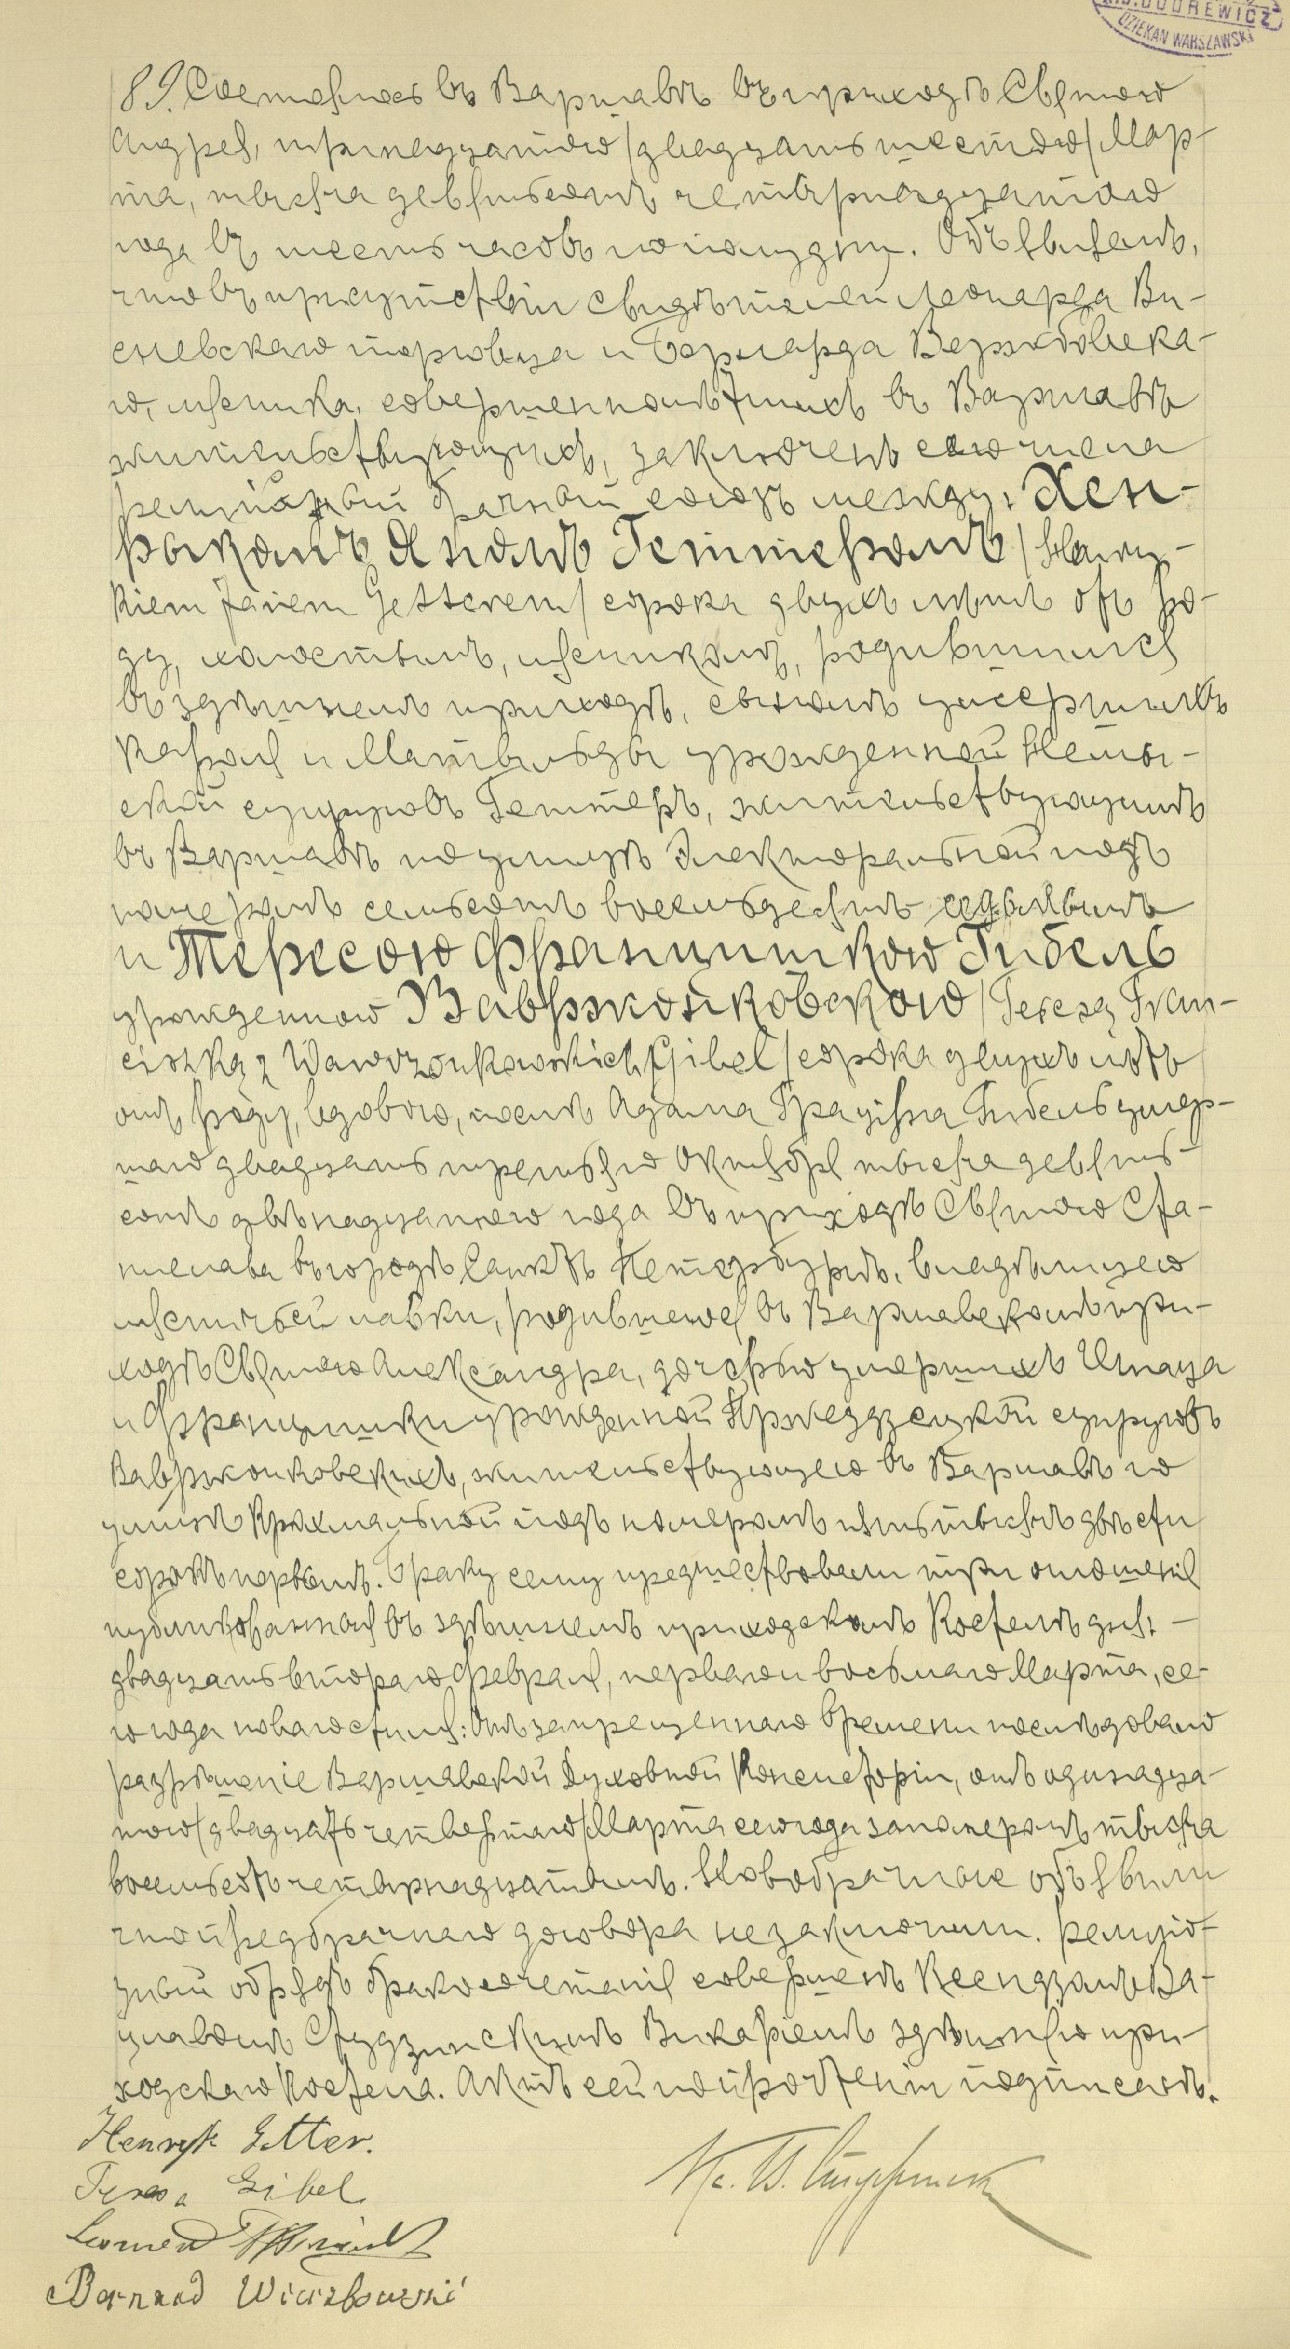 DZIEKAN WARSZAWSKI
89. Состоялось въ Варшавѣ въ приходѣ Святого
Андрея, тринадцатого /двадцать шестого/ Мар-
та, тысяча девятьсотъ четырнадцатого
года въ шесть часовъ пополудни. Объявляемъ,
что въ присутствіи свидѣтелей Леонарда Ви-
сневскаго торговца и Бернарда Вержбовска-
го, мясника, совершеннолѣтнихъ въ Варшавѣ
жительствующихъ, заключенъ сего числа
религіозный брачный союзъ между: Хен-
рыкомъ Яномъ Геттеромъ /Henry-
kiem Janem Getterem/ сорока двухъ лѣтъ отъ ро-
ду, холостымъ, мясникомъ, родившимся
въ здѣшнемъ приходѣ, сыномъ умершихъ
Кароля и Матильды урожденной
ской супруговъ Геттеръ, жительствующимъ
въ Варшавѣ по улицѣ Электоральной подъ
номеромъ семьсотъ восемьдесятъ седьмымъ
и Тересою Францишкою Гибель
урожденною Вавржонковскою /Teresą Fran-
ciszką z Wawrzonkowskich Gibel/ сорока двухъ лѣтъ
отъ роду, вдовою, послѣ Адама Граціяна Гибель умер-
шаго двадцать третьяго Октября тысяча девять-
сотъ двѣнадцатого года въ приходѣ Святого Ста-
нислава въ городѣ Санктъ Петербургѣ, владѣлицею
мясничьей лавки, родившеюся въ Варшавскомъ при-
ходѣ Святого Александра, дочерью умершихъ Игнаца
и Францишки урожденной супруговъ
Вавржонковскихъ, жительствующею въ Варшавѣ по
улицѣ Крахмальной подъ номеромъ пять тысячъ двѣсти
сорокъ первымъ. Браку сему предшествовали три оглашенія
публикованныя въ здѣшнемъ приходскомъ Костелѣ дня:
двадцать второго Февраля, перваго и восьмаго Марта, се-
го года новаго стиля: Отъ запрещеннаго времени послѣдовало
разрѣшеніе Варшавской Духовной Консисторіи, отъ одинадца-
того /двадцать четвертаго/ Марта сего года за номеромъ тысяча
восемьсотъ четырнадцатымъ. Новобрачные объявили
что предбрачнаго договора не заключили. Религіо-
зный обрядъ бракосочетанія совершенъ Ксендзомъ Ва-
цлавомъ Студзинскимъ Викаріемъ здѣшняго при-
ходскаго Костела. Актъ сей по прочтеніи подписанъ.
Henryk Getter.
Teresa Gibel
Bernard Wierzbowski